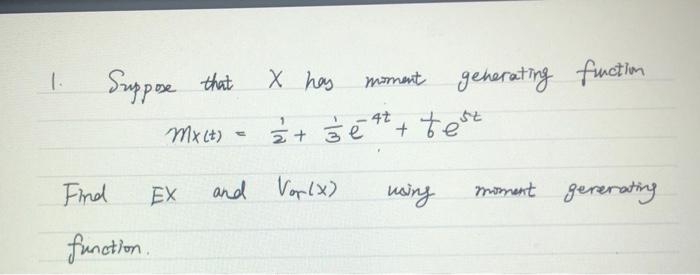 1. Suppose that X has moment generating fuction
Mx(t) = 1/2 + 1/3 e^-4t + 1/6 e^5t
Find EX and Var(X) using moment gererating
function.